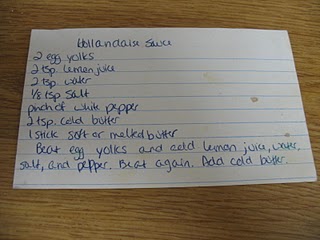 Hollandaise Sauce
2 egg yolks
2 tsp. lemon juice
2 tsp. water
1/8 tsp salt
pinch of white pepper
2 tsp. cold butter
1 stick soft or melted butter
Beat egg yolks and cold lemon juice, water,
salt, and pepper. Beat again. Add cold butter.